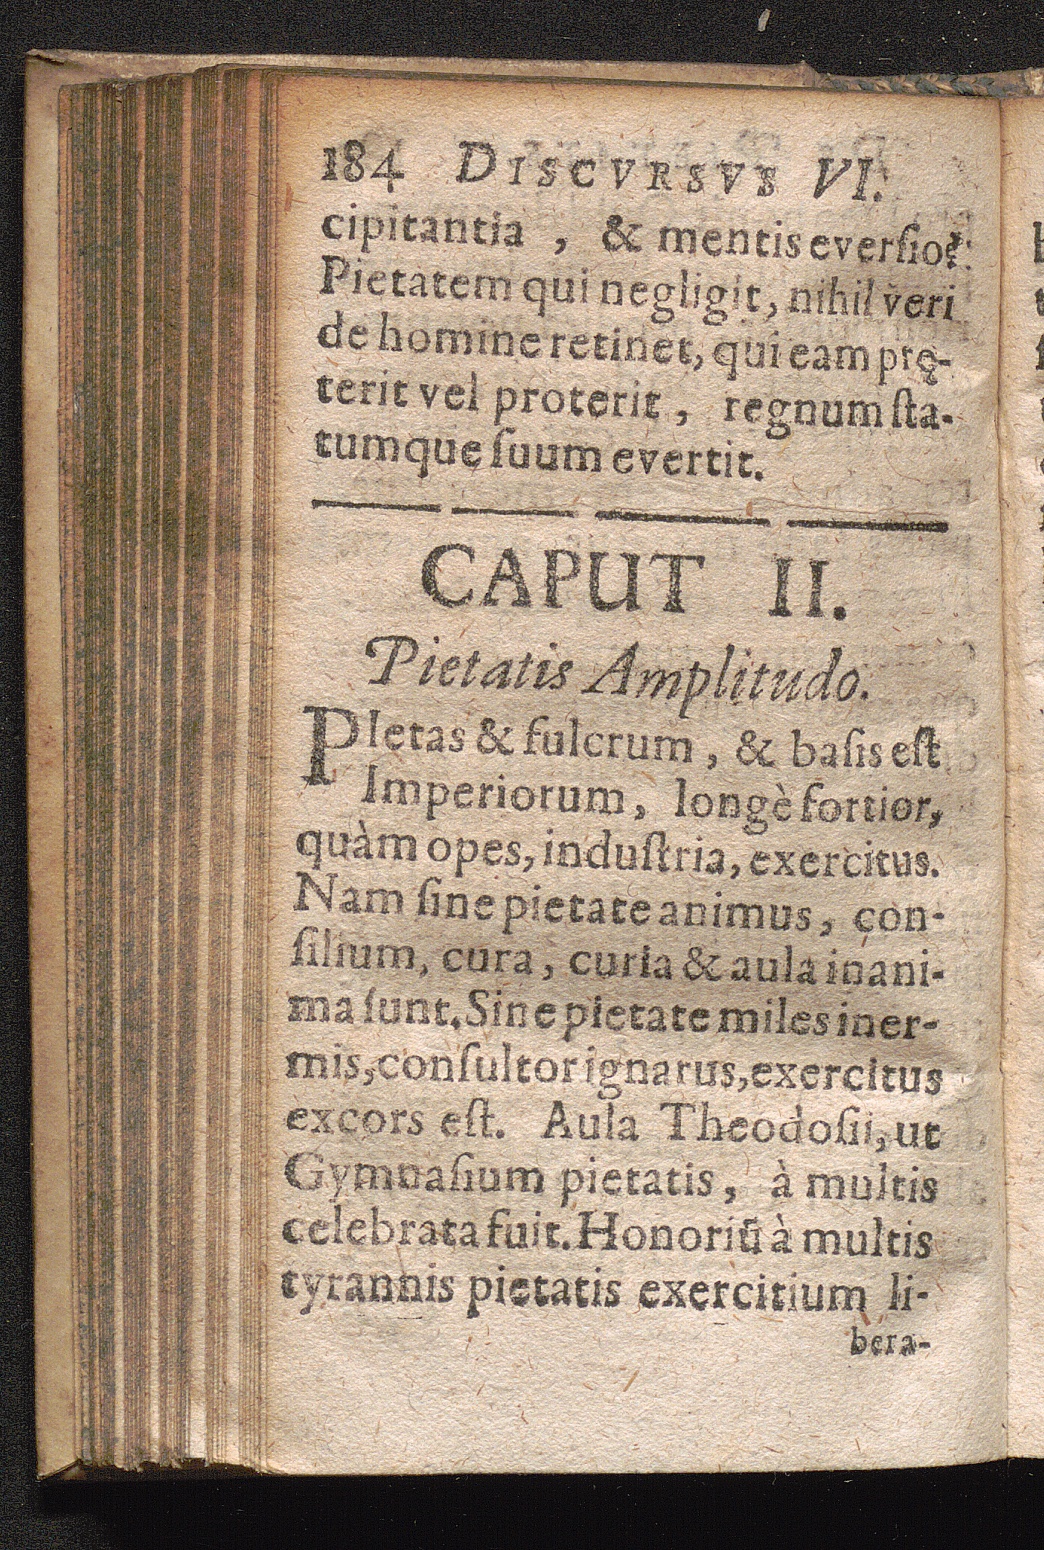 184 DISCVRSVS VI.
cipitantia , & mentis eversio:
Pietatem qui negligit, nihil veri
de homine retinet, qui eam prę-
terit vel proterit, regnum sta-
tumque suum evertit.
CAPUT II.
Pietatis Amplitudo.
PIetas & fulcrum, & basis est
Imperiorum, longè fortior,
quàm opes, industria, exercitus.
Nam sine pietate animus, con-
silium, cura, curia & aula inani-
ma sunt. Sine pietate miles iner-
mis, consultor ignarus, exercitus
excors est. Aula Theodosii, ut
Gymnasium pietatis, à multis
celebrata fuit. Honoriū à multis
tyrannis pietatis exercitium li-
bera-